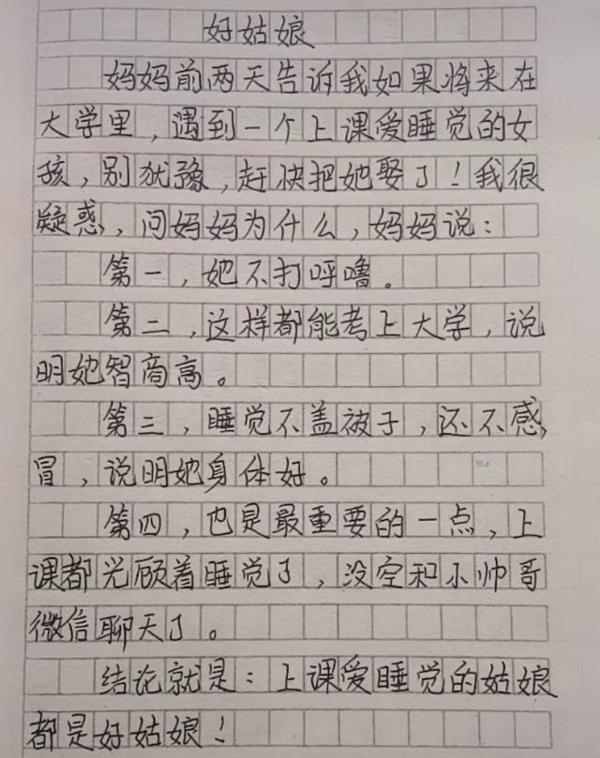 好姑娘
妈妈前两天告诉我如果将来在
大学里，遇到一个上课爱睡觉的女
孩，别犹豫，赶快把她娶了！我很
疑惑，问妈妈为什么，妈妈说：
第一，她不打呼噜。
第二，这样都能考上大学，说
明她智商高。
第三，睡觉不盖被子，还不感
冒，说明她身体好。
第四，也是最重要的一点，上
课都光顾着睡觉了，没空和小帅哥
微信聊天了。
结论就是：上课爱睡觉的姑娘
都是好姑娘！